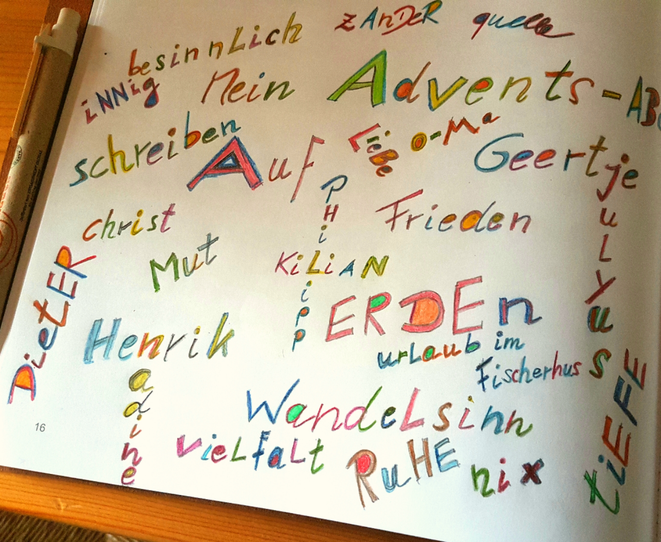 besinnLich
zANDeR
quelle
iNNig
Mein Advents-AB
schreiben
Auf
LiEBe
O-Ma
Geertje
PHiLiPP
jULYuS
christ
Frieden
Mut
KiLiAN
DieTER
ERDEn
Henrik
urLaub im
Fischerhus
nadine
WandeLsinn
tiEFE
vieLfaLt
RuHE
nix
16